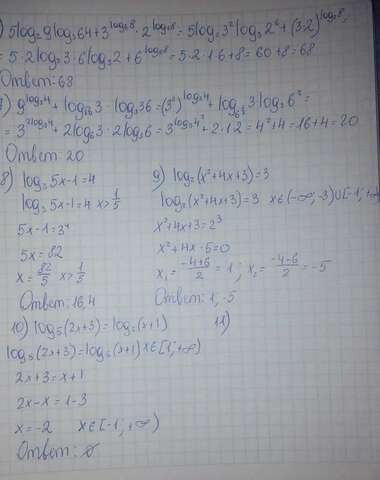 ) 5log₂9log₃64+3^log₆8 · 2^log₆8 = 5log₂3²log₃2⁶+(3·2)^log₆8 =
= 5·2log₂3·6log₃2+6^log₆8 = 5·2·1·6+8=60+8=68
Ответ: 68
7) 9^log₃4 + log√6 3·log₃36=(3²)^log₃4+log 3log₃6²=
=3^2log₃4+2log₆3·2log₃6=3^log₃4²+2·1·2=4²+4=16+4=20
Ответ: 20
8) log₃5x-1=4
log₃5x-1=4 x>1/5
5x-1=3⁴
5x=82
x=82/5 x>1/5
Ответ: 16,4
9) log₂(x²+4x+3)=3
log₂(x²+4x+3)=3 x∈(-∞;-3)∪[-1;+∞)
x²+4x+3=2³
x²+4x-5=0
x₁=(-4+6)/2=1; x₂=(-4-6)/2=-5
Ответ: 1, -5
10) log₅(2x+3)=log₅(x+1)
log₅(2x+3)=log₅(x+1) x∈[1;+∞)
2x+3=x+1
2x-x=1-3
x=-2 x∈[-1;+∞)
Ответ: ∅
11)